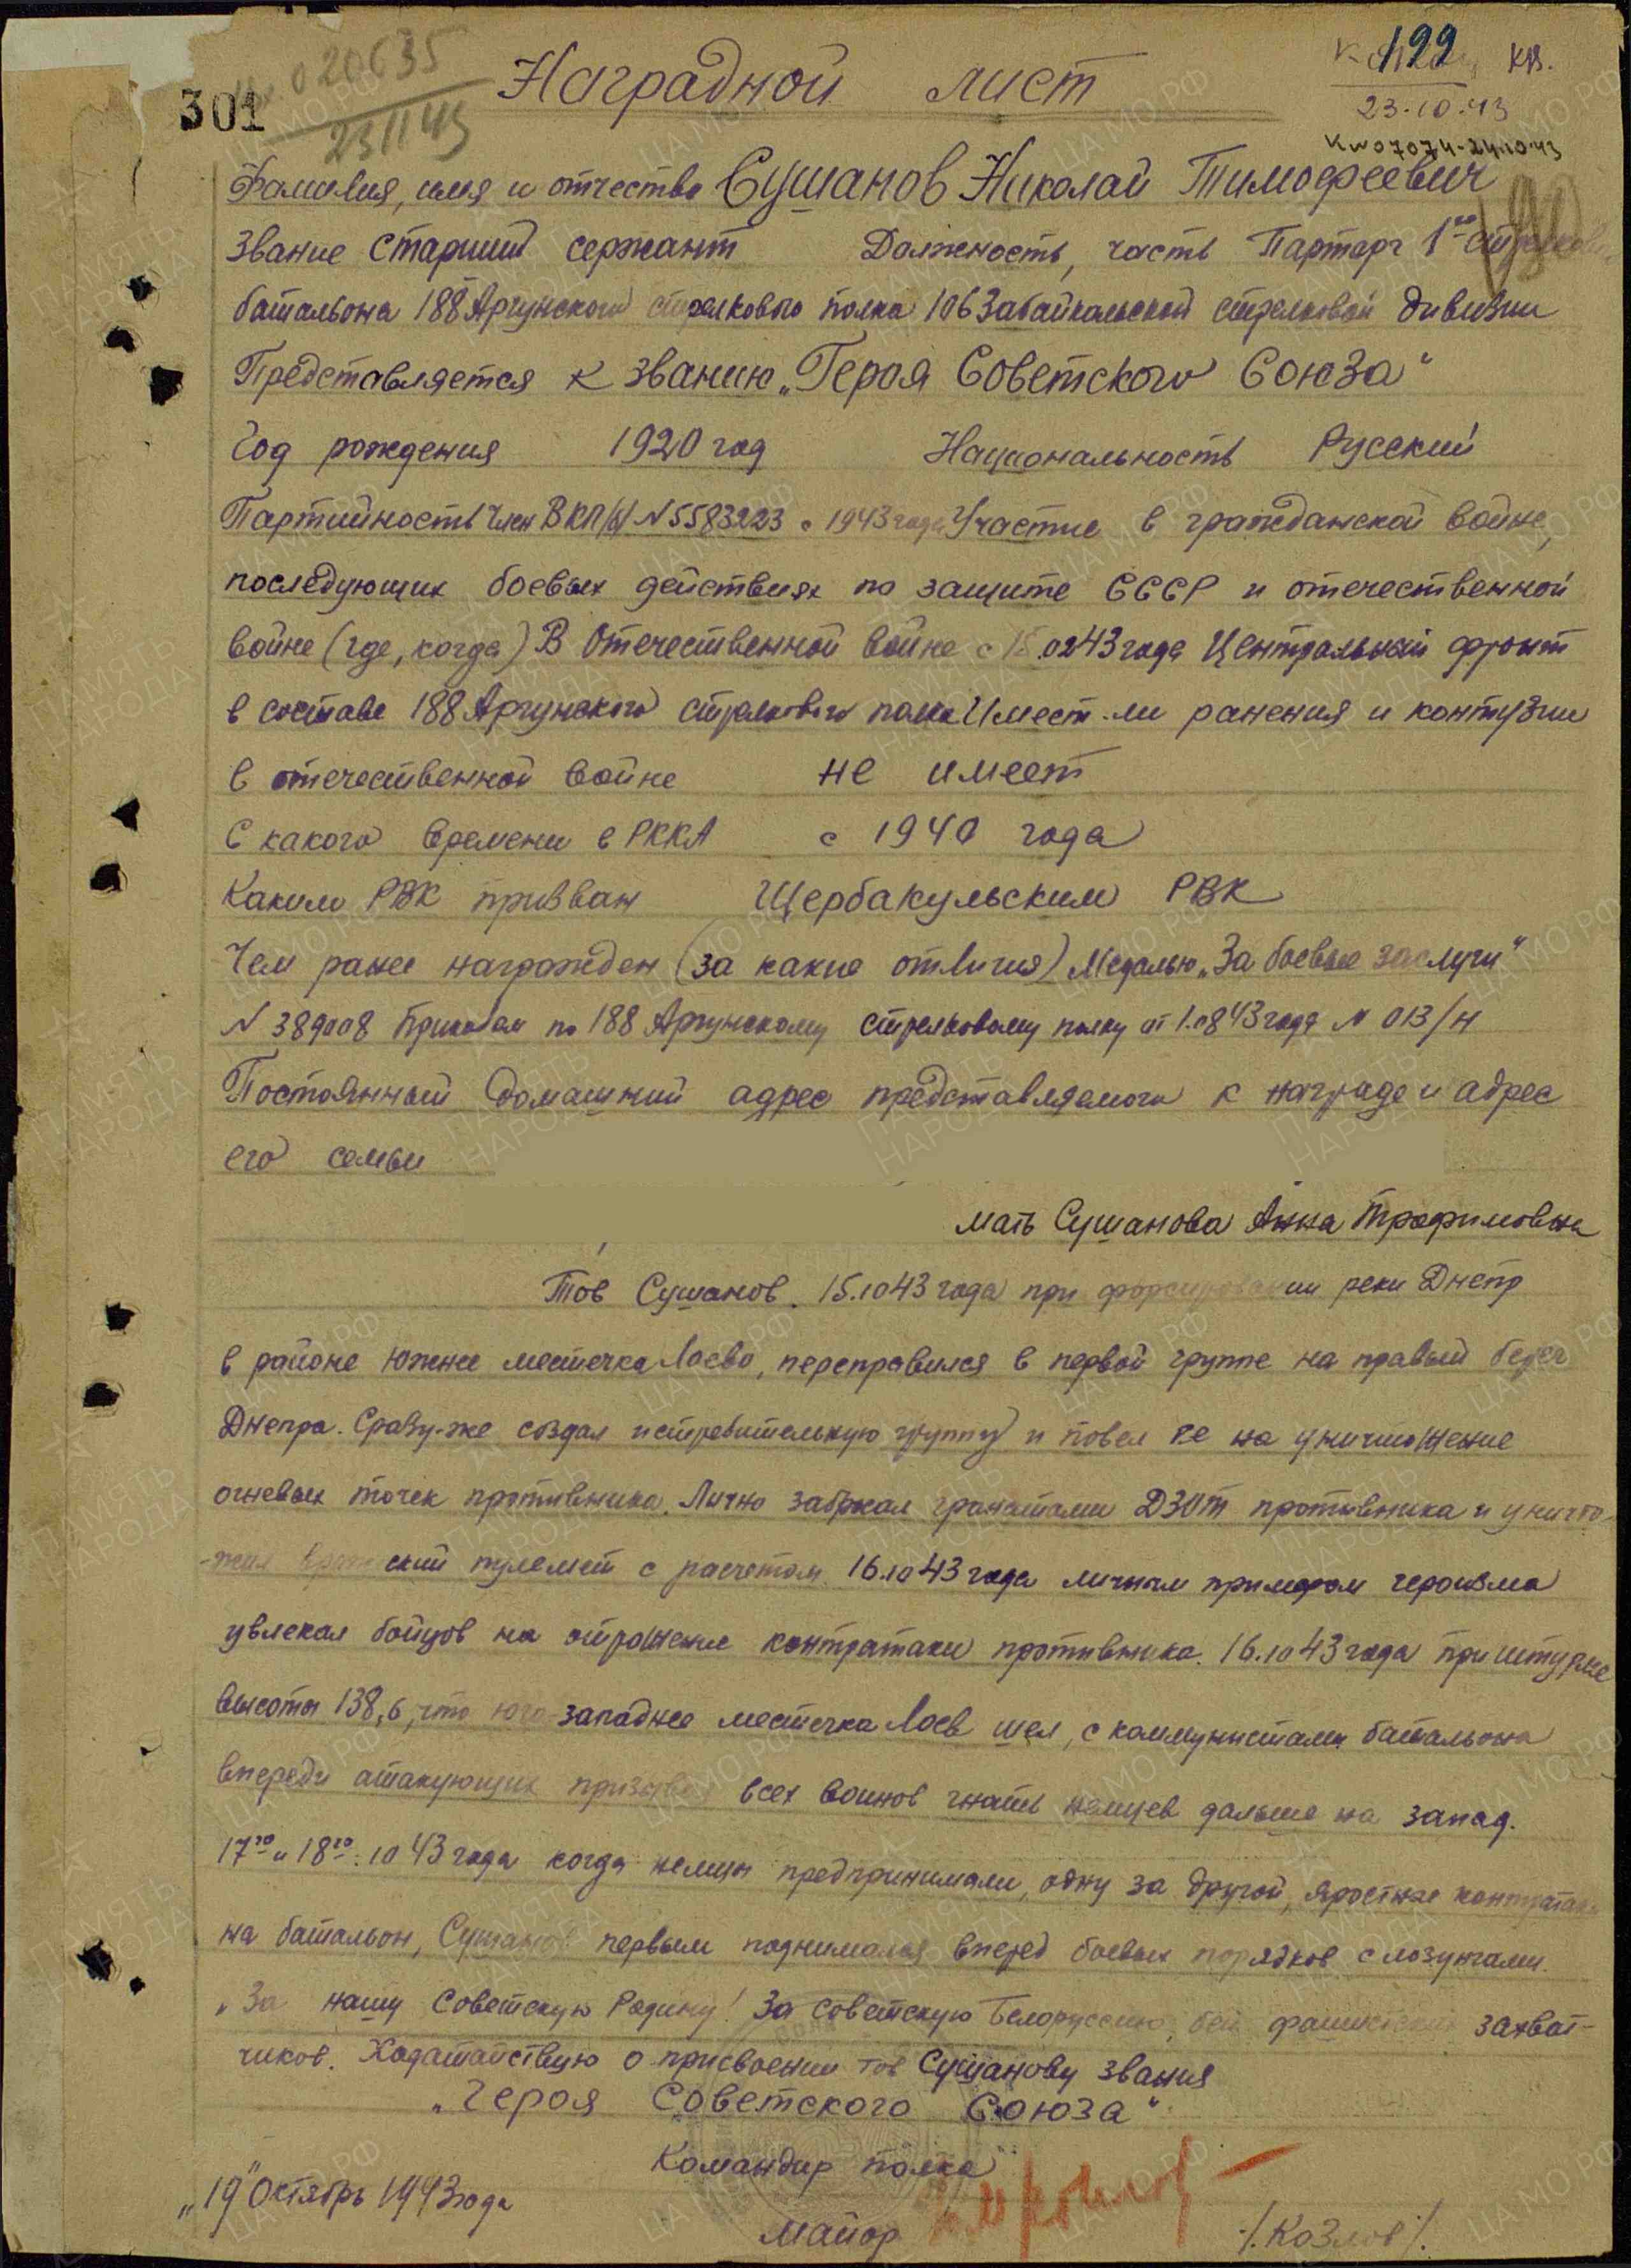 020635
23 11 43
301
Наградной лист
199 КВ.
23.10.43
07074-24.10.43
Фамилия, имя и отчество Сушанов Николай Тимофеевич
Звание Старший сержант Должность, часть Парторг 1го стрелкового
батальона 188 Аргунского стрелкового полка 106 Забайкальской стрелковой дивизии
Представляется к званию „Героя Советского Союза"
Год рождения 1920 год Национальность Русский
Партийность Член ВКП(б) N 5583223 с 1943 года Участие в гражданской войне,
последующих боевых действиях по защите СССР и отечественной
войне (где, когда) В Отечественной войне с 15.02 43 года Центральный фронт
в составе 188 Аргунского стрелкового полка Имеет-ли ранения и контузии
в отечественной войне не имеет
С какого времени в РККА с 1940 года
Каким РВК призван Щербакульским РВК
Чем ранее награжден (за какие отличия) Медалью „За боевые заслуги"
N 389008 Приказом по 188 Аргунскому стрелковому полку от 1.08 43 года N 013/н
Постоянный домашний адрес представляемого к награде и адрес
его семьи
мать Сушанова Анна Трофимовна
Тов Сушанов. 15.10 43 года при форсировании реки Днепр
в районе южнее местечка Лоево, переправился в первой группе на правый берег
Днепра. Сразу-же создал истребительную группу и повел ее на уничтожение
огневых точек противника. Лично забросал гранатами ДЗОТ противника и уничто-
-жил вражеский пулемет с расчетом. 16.10 43 года личным примером героизма
увлекал бойцов на отражение контратаки противника. 16.10 43 года при штурме
высоты 138,6, что юго-западнее местечка Лоев шел, с коммунистами батальона
впереди атакующих призывая всех воинов гнать немцев дальше на запад.
17го и 18го.10 43 года когда немцы предпринимали, одну за другой, яростные контратаки
на батальон, Сушанов первым поднимался вперед боевых порядков с лозунгами.
„За нашу Советскую Родину! За Советскую Белоруссию, бей фашистских захват-
чиков. Ходатайствую о присвоении тов Сушанову звания
„Героя Советского Союза"
Командир полка
майор /.Козлов/.
„19" Октябрь 1943 года